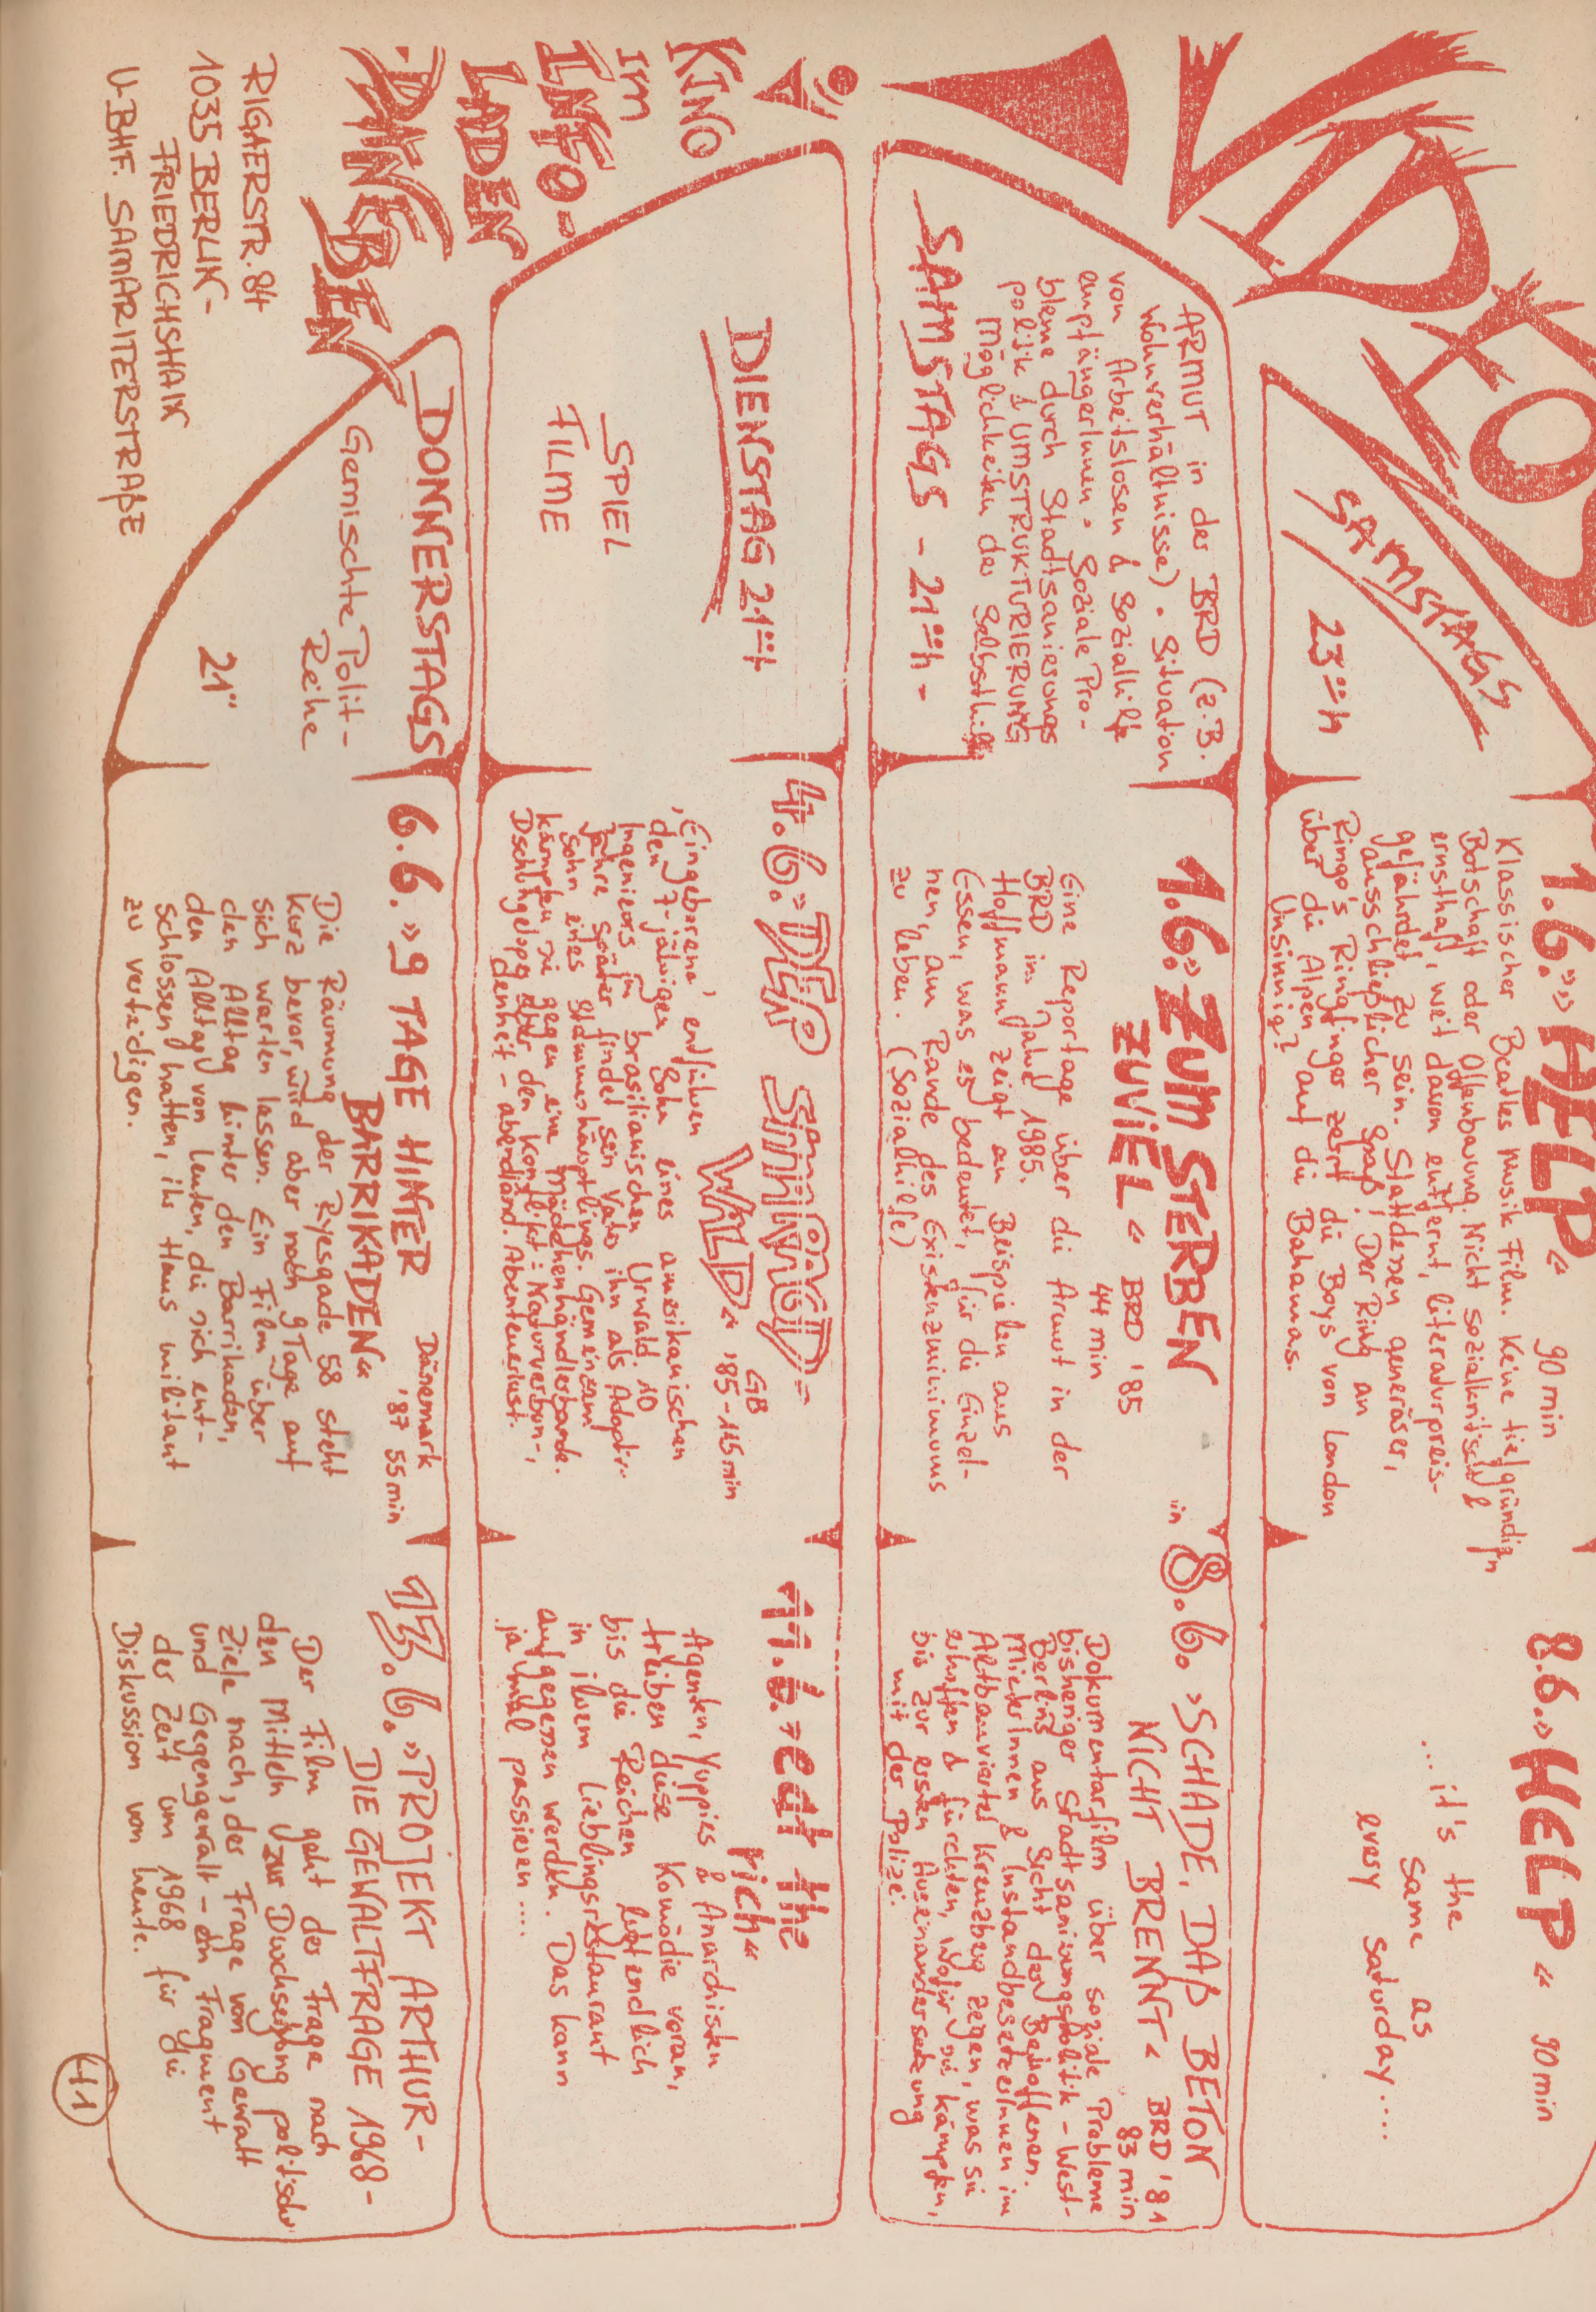 VIDEOS
KINO
IM
INFO-
LADEN
DANEBEN
RIGAERSTR. 84
1035 BERLIN-
FRIEDRICHSHAIN
U-BHF. SAMARITERSTRAßE
SAMSTAGS
23⁰⁰h
1.6. »HELP« 90 min
Klassischer Beatles Musik Film. Keine tiefgründigen
Botschaft oder Offenbarung. Nicht sozialkritisch &
ernsthaft, weit davon entfernt, literaturpreis-
gefährdet zu sein. Stattdessen generöser,
ausschließlicher Spaß! Der Ring an
Ringo's Ringfinger zerrt die Boys von London
über die Alpen auf die Bahamas.
Unsinnig?
8.6. »HELP« 90 min
...it's the
same as
every saturday....
ARMUT in der BRD (z.B.
Wohnverhältnisse). Situation
von Arbeitslosen & Sozialhilfe
empfängerInnen. Soziale Pro-
bleme durch Stadtsanierungs
politik & UMSTRUKTURIERUNG
Möglichkeiten der Selbsthilfe
SAMSTAGS - 21⁰⁰h -
1.6. »ZUM STERBEN
ZUVIEL« BRD '85
44 min
Eine Reportage über die Armut in der
BRD im Jahre 1985.
Hoffmann zeigt an Beispielen aus
Essen, was es bedeutet, für die Einzel-
nen, am Rande des Existenzminimums
zu leben. (Sozialhilfe)
in 8.6. »SCHADE, DAß BETON
NICHT BRENNT« BRD '81
83 min
Dokumentarfilm über soziale Probleme
bisheriger Stadtsanierungspolitik - West-
Berlins aus Sicht der Betroffenen.
MieterInnen & InstandbesetzerInnen im
Altbauviertel Kreuzberg zegen, was sie
erhoffen & fürchten, wofür sie kämpften,
bis zur ersten Auseinandersetzung
mit der Polizei.
DIENSTAG 21⁰⁰h
SPIEL
FILME
4.6. »DER SMARAGD-
WALD« GB
'85 - 115 min
'Eingeborene' entführen
den 7-jährigen Sohn eines amerikanischen
Ingenieurs im brasilianischen Urwald. 10
Jahre später findet sein Vater ihn als Adoptiv-
sohn eines Stammeshäuptlings. Gemeinsam
kämpfen sie gegen eine Mädchenhändlerbande.
Dschungeloper über den Konflikt: Naturverbun-
denheit - abendländ. Abenteuerlust.
11.6. »eat the
rich«
Agenten, Yuppies & Anarchisten
treiben diese Komödie voran,
bis die Reichen letendlich
in ihrem Lieblingsrestaurant
aufgegessen werden. Das kann
ja mal passieren ....
DONNERSTAGS
Gemischte Polit-
Reihe
21⁰⁰
6.6. »9 TAGE HINTER
BARRIKADEN« Dänemark
'87 55 min
Die Räumung der Ryesgade 58 steht
kurz bevor, wird aber noch 9 Tage auf
sich warten lassen. Ein Film über
den Alltag hinter den Barrikaden,
den Alltag von Leuten, die sich ent-
schlossen hatten, ihr Haus militant
zu verteidigen.
13.6. »PROJEKT ARTHUR-
DIE GEWALTFRAGE 1968-
Der Film geht der Frage nach
den Mitteln zur Durchsetzung politischer
Ziele nach, der Frage von Gewalt
und Gegengewalt - ein Fragment
der Zeit um 1968 für die
Diskussion von heute.
41